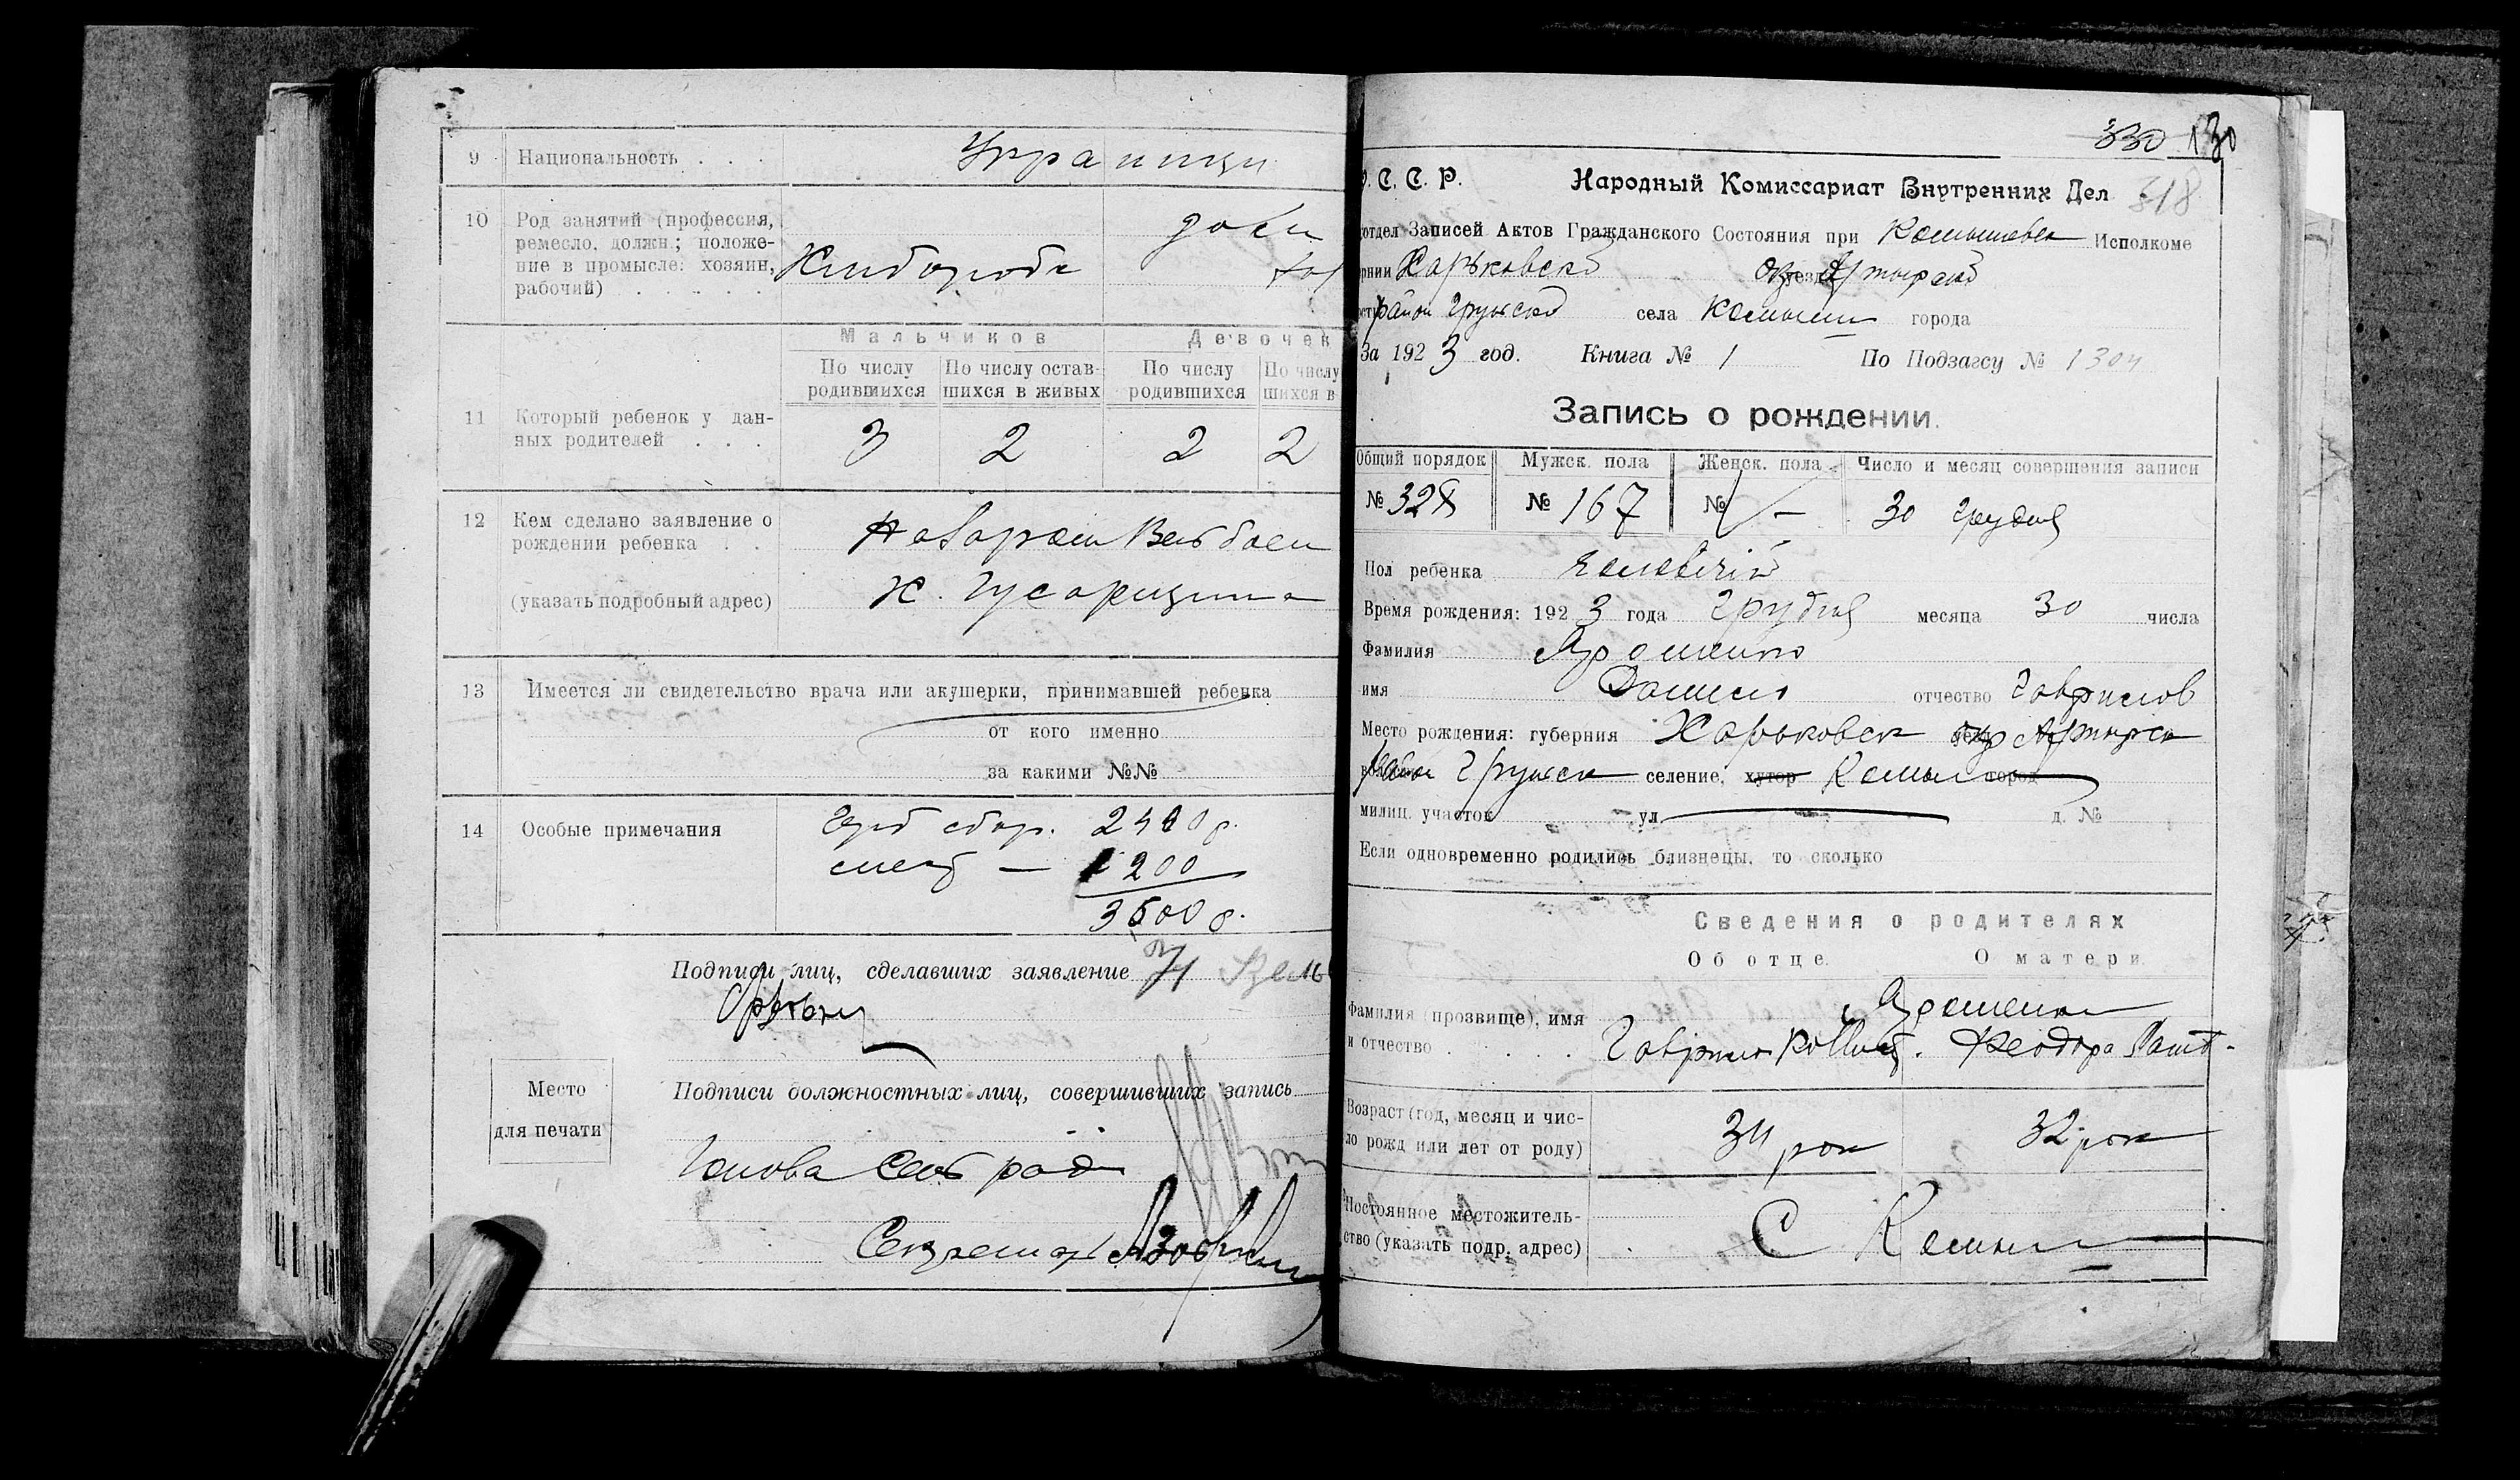 9 Национальность . . . Украинци
10 Род занятий (профессия,
ремесло, должн.; положе-
ние в промысле: хозяин,
рабочий) . . . . .
Хлибороби
Мальчиков Девочек
По числу родившихся По числу остав-шихся в живых По числу родившихся По числу
шихся в
11 Который ребенок у дан-
ных родителей . . .
3 2 2 2
12 Кем сделано заявление о
рождении ребенка . .
(указать подробный адрес)
13 Имеется ли свидетельство врача или акушерки, принимавшей ребенка
от кого именно
за какими №№
14 Особые примечания
Герб сбор. 2400 р.
1200
3600 р.
Подписи лиц, сделавших заявление
Место
для печати
Подписи должностных лиц, совершивших запись
Голова Сельради
Секретарь
330 130
С. С. Р. Народный Комиссариат Внутренних Дел 318
отдел Записей Актов Гражданского Состояния при Комышевск Исполкоме
рнии Харьковской уезд
район Грунской села Комыши города
За 1923 год. Книга № 1 По Подзагсу № 1304
Запись о рождении.
Общий порядок Мужск. пола Женск. пола Число и месяц совершения записи
№ 328 № 167 № — 30 Грудня
Пол ребенка чоловічій
Время рождения: 1923 года Грудня месяца 30 числа
Фамилия Ярошенко
имя Данило отчество Гаврилов
Место рождения: губерния Харьковск окр Ахтырск
район Грунск селение, хутор Комыши город
милиц. участок ул. д. №
Если одновременно родились близнецы, то сколько
Сведения о родителях
Об отце. О матери.
Фамилия (прозвище), имя
и отчество . . . . .
Ярошенки
Гаврило Феодора
Возраст (год, месяц и чис-
ло рожд или лет от роду)
34 рок 32 рок
Постоянное местожитель-
ство (указать подр. адрес)
С Комыши